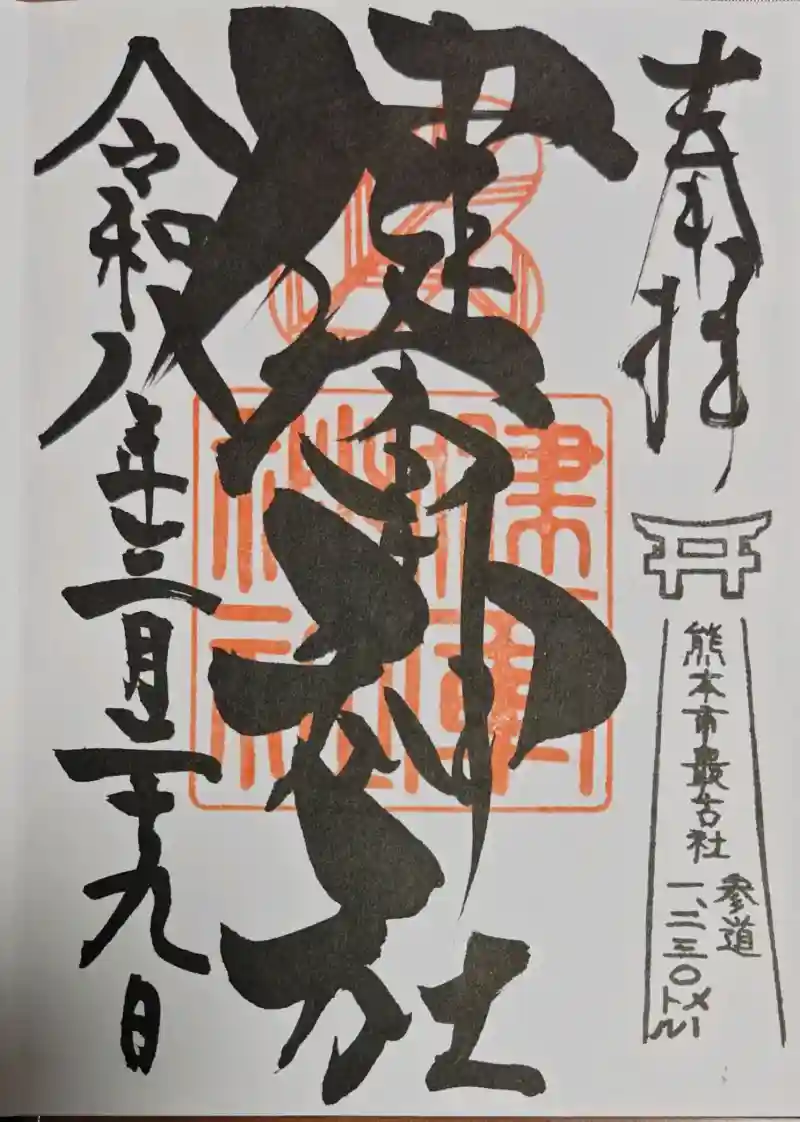 奉拝
熊本市最古社
参道
一、二三〇メートル
健軍神社
令和八年三月二十九日